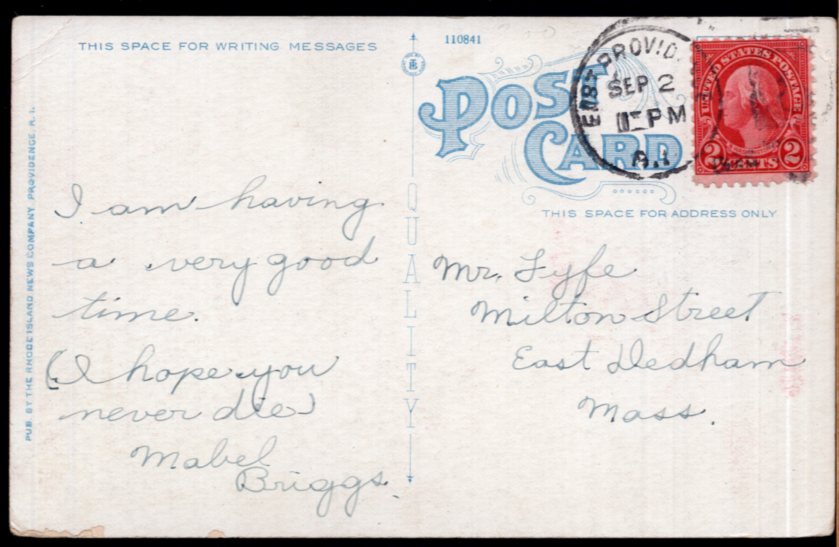 THIS SPACE FOR WRITING MESSAGES
110841
POST CARD
THIS SPACE FOR ADDRESS ONLY
QUALITY
PUB. BY THE RHODE ISLAND NEWS COMPANY, PROVIDENCE, R. I.
EAST PROVID
SEP 2
PM
R.I.
UNITED STATES POSTAGE
2 CENTS 2
I am having
a very good
time.
(I hope you
never die)
Mabel
Briggs.
Mr. Fyfe
Milton Street
East Dedham
Mass.